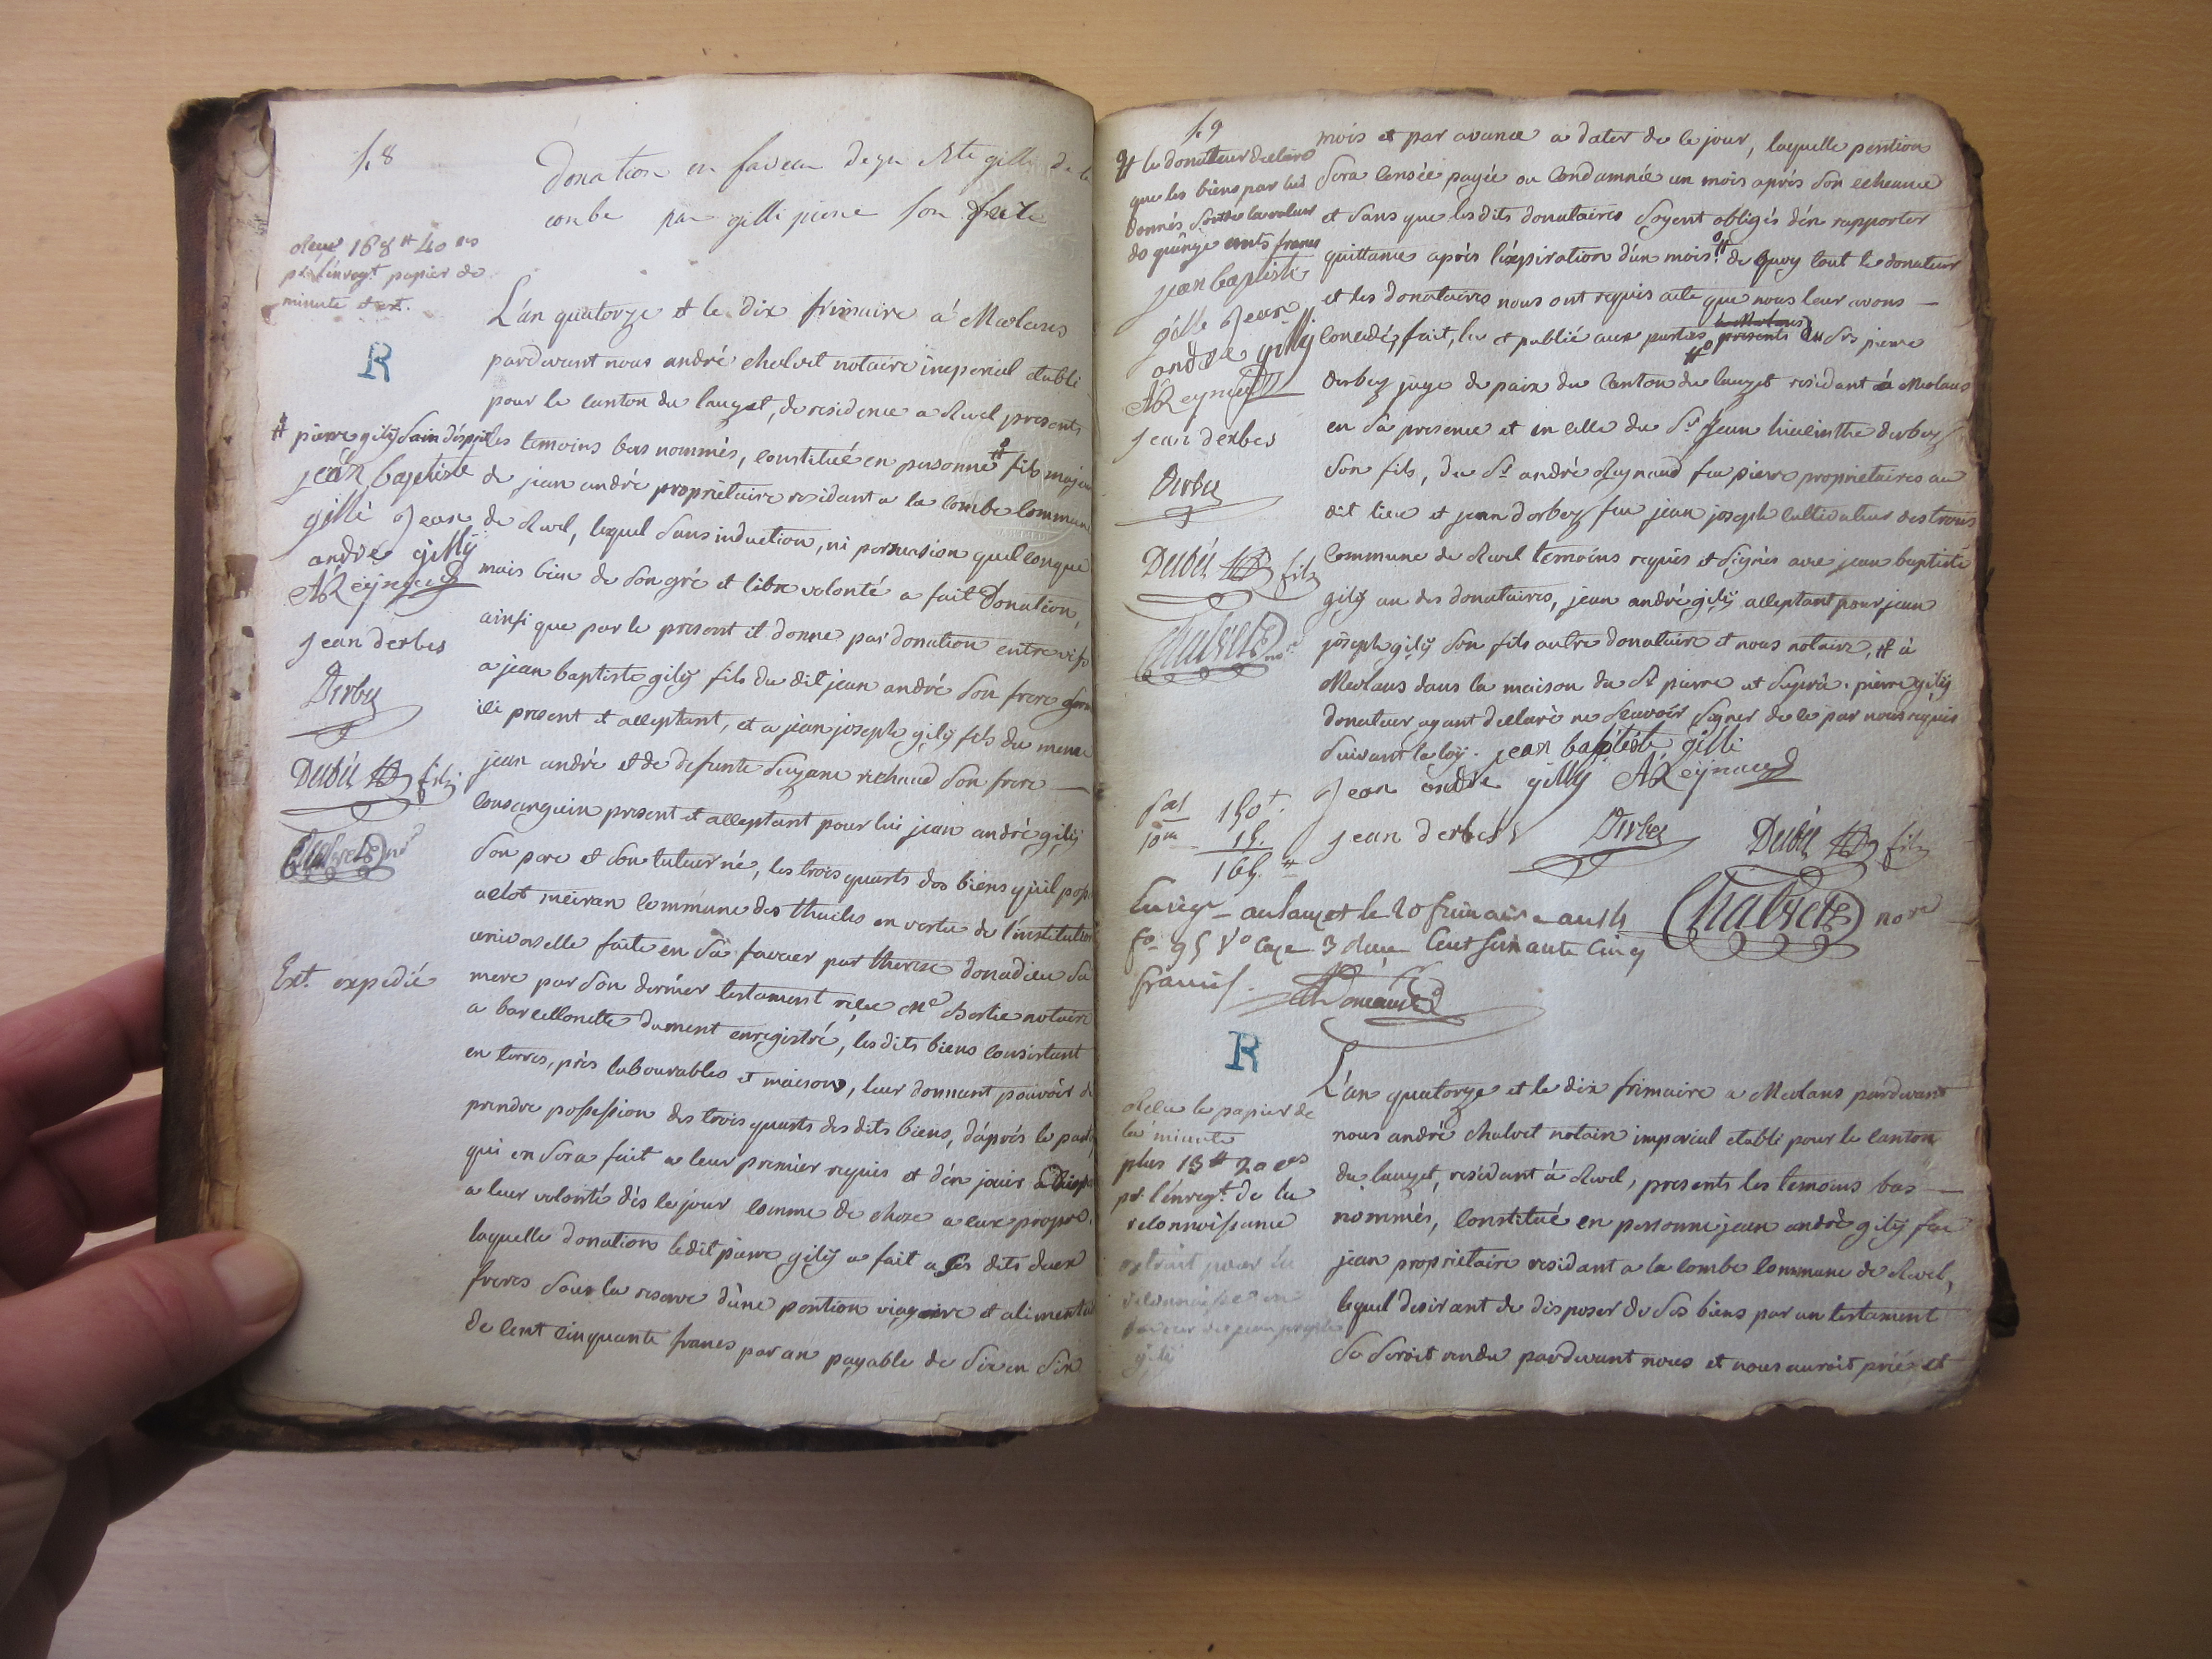 48
Donation en faveur de jn Bte gilli de la
combe par gilli pierre son frere
Reçu 168 # 40 es
pr l'enregt. papier de
minute et ext.
R
L'an quatorze et le dix frimaire a Meolans
pardevant nous andré chalvet notaire imperial etabli
pour le canton du lauzet, de residence a Revel presents
# pierre gilij sain d'esprit
les temoins bas nommés, constitué en personne # fils majeur
jean baptiste
gilli Jean
andré gilly
A Reynaud
jean derbes
Derbez
Derbéz fils
Chalvet nore
de jean andré propriétaire residant a la combe commune
de Revel, lequel sans induction, ni persuasion quelconque
mais bien de son gré et libre volonté a fait Donation,
ainsi que par le present il donne par donation entre vifs
a jean baptiste gilij fils du dit jean andré son frere germ
ici present et acceptant, et a jean joseph gilij fils du meme
jean andré et de defunte suzane richaud son frere
consanguin present et acceptant pour lui jean andré gilij
son pere et son tuteur né, les trois quarts des biens qu'il poss
aclot meiran commune des thuiles en vertu de l'institution
universelle faite en sa faveur par therese donadieu sa
mere par son dernier testament riere Me Bertie notaire
a barcellonette dument enregistré, les dits biens consistant
en terres, près labourables et maison, leur donnant pouvoir de
prendre possession des trois quarts des dits biens, d'après le partage
qui en sera fait a leur premier requis et d'en jouir
a leur volonté dès le jour comme de chose a eux propre.
laquelle donation ledit pierre gilij a fait a ses dits deux
freres sous la reserve d'une pention viagere et alimentaire
de cent cinquante francs par an payable de six en six
Ext. expedié
49
mois et par avance a dater de ce jour, laquelle pention
sera censée payée ou condamnée un mois après son echeance
et sans que les dits donataires soyent obligés d'en rapporter
quittance après l'expiration d'un mois. # de quoy tout le donateur
et les donataires nous ont requis acte que nous leur avons
concedé, fait, lu et publié aux parties presents du Sr pierre
derbez juge de paix du canton du lauzet residant a Meolans
en sa presence et en celle du Sr Jean hiacinthe derbez
son fils, du Sr andré Reynaud feu pierre proprietaires au
dit lieu et jean derbez feu jean joseph cultivateur des trois
commune de Revel temoins requis et signés avec jean baptiste
gilij un des donataires, jean andré gilij acceptant pour jean
joseph gilij son fils autre donataire et nous notaire, # à
Meolans dans la maison du Sr pierre et pierre gilij
donateur ayant declaré ne sçavoir signer de ce par nous requis
suivant la loy. jean baptiste gilli
Jean andré gilly A Reynaud
jean derbes Derbez Derbéz fils
Chalvet nore
# le donateur declare
que les biens par lui
donnés sont de la valeur
de quinze cents francs
jean baptiste
gille Jean
andré gilly
A Reynaud
jean derbes
Derbez
Derbéz fils
Chalvet nore
150 #.
10me 15.
165. #
Enregé au lauzet le 20 frimaire an 14
fo 95 Vo case 3 Reçu Cent soixante cinq
francs.
R
Reçu le papier de
la minute
plus 13 # 20 es
pr. l'enregt. de la
reconnoissance
extrait pour la
L'an quatorze et le dix frimaire a Meolans pardevant
nous andré chalvet notaire imperial etabli pour le canton
du lauzet, residant à Revel, presents les temoins bas
nommés, constitué en personne jean andré gilij feu
jean proprietaire residant a la combe commune de Revel,
lequel desirant de disposer de ses biens par un testament
se seroit rendu pardevant nous et nous auroit prié et